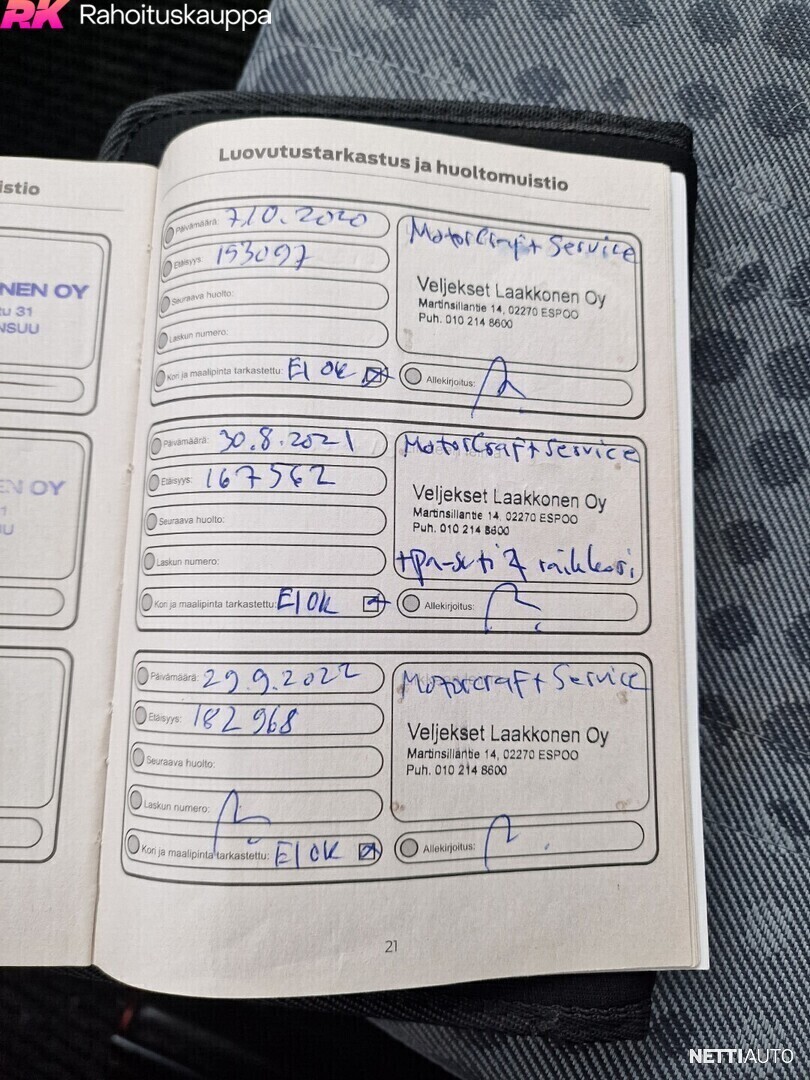 RK Rahoituskauppa
istio
NEN OY
tu 31
NSUU
EN OY
Luovutustarkastus ja huoltomuistio
Päivämäärä: 7.10.2020
Etäisyys: 153097
Seuraava huolto:
Laskun numero:
Kori ja maalipinta tarkastettu: EI OK
MotorCraft Service
Veljekset Laakkonen Oy
Martinsillantie 14, 02270 ESPOO
Puh. 010 214 8600
Allekirjoitus:
Päivämäärä: 30.8.2021
Etäisyys: 167562
Seuraava huolto:
Laskun numero:
Kori ja maalipinta tarkastettu: EI OK
MotorCraft Service
Veljekset Laakkonen Oy
Martinsillantie 14, 02270 ESPOO
Puh. 010 214 8600
Allekirjoitus:
Päivämäärä: 29.9.2022
Etäisyys: 182 968
Seuraava huolto:
Laskun numero:
Kori ja maalipinta tarkastettu: EI OK
Motorcraft Service
Veljekset Laakkonen Oy
Martinsillantie 14, 02270 ESPOO
Puh. 010 214 8600
Allekirjoitus:
21
NETTIAUTO